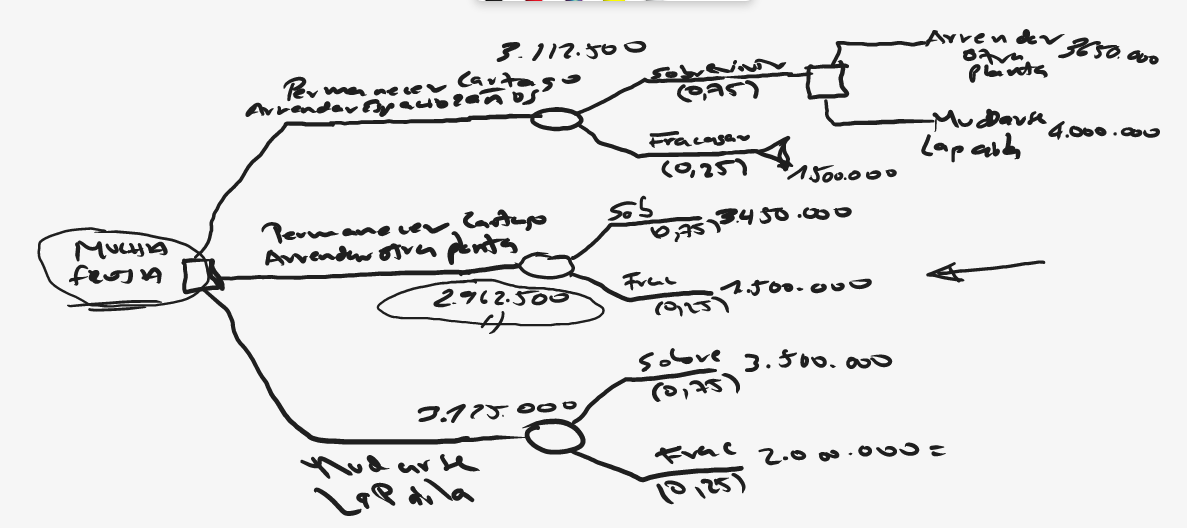 3.112.500
Permanecer Cartago
Arrendar espacio 2 años
Sobrevivir
(0,75)
Arrendar
otra
planta
3650.000
Mudarse
4.000.000
Fracasar
(0,25)
1500.000
MUCHA
FRUTA
Permanecer Cartago
Arrendar otra planta
2.962.500
Sob
0,75)
3.450.000
Frac
(0,25)
1.500.000
3.125.000
Mudarse
Sobre
(0,75)
3.500.000
Frac
(0,25)
2.000.000 =